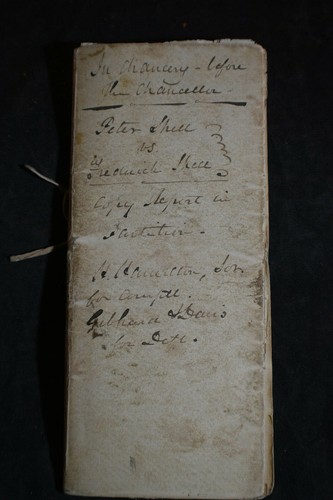 In Chancery - before
the Chancellor -
Peter Shell
vs.
Frederick Shell
Copy Report in
Partition -
H. Hamilton, Sor.
for Compt.
Gebhard & Davis
for Deft.